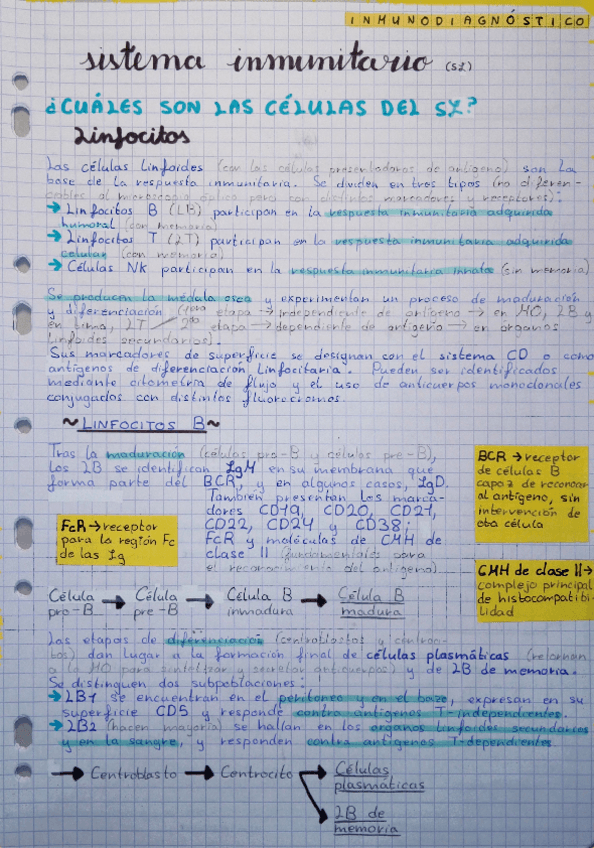 INMUNODIAGNÓSTICO
sistema inmunitario (SI)
¿CUÁLES SON LAS CÉLULAS DEL SI?
Linfocitos
Las células linfoides (con las células presentadoras de antígeno) son la
base de la respuesta inmunitaria. Se dividen en tres tipos (no diferen-
ciables al microscopio óptico pero con distintos marcadores y receptores):
→ Linfocitos B (LB) participan en la respuesta inmunitaria adquirida
humoral (con memoria)
→ Linfocitos T (LT) participan en la respuesta inmunitaria adquirida
celular (con memoria)
→ Células NK participan en la respuesta inmunitaria innata (sin memoria)
Se producen la médula ósea y experimentan un proceso de maduración
y diferenciación (1era etapa → independiente de antígeno → en MO, LB y
en timo, LT / 2da etapa → dependiente de antígeno → en órganos
linfoides secundarios).
Sus marcadores de superficie se designan con el sistema CD o como
antígenos de diferenciación linfocitaria. Pueden ser identificados
mediante citometría de flujo y el uso de anticuerpos monoclonales
conjugados con distintos fluorocromos.
~LINFOCITOS B~
Tras la maduración (células pro-B y células pre-B),
los LB se identifican IgM en su membrana que
forma parte del BCR, y en algunos casos, IgD.
También presentan los marca-
dores CD19, CD20, CD21,
CD22, CD24 y CD38;
FcR y moléculas de CMH de
clase II (fundamentales para
el reconocimiento del antígeno)
BCR → receptor
de células B
capaz de reconocer
al antígeno, sin
intervención de
otra célula
FcR → receptor
para la región Fc
de las Ig
CMH de clase II →
complejo principal
de histocompatibi-
lidad
Célula pro-B → Célula pre-B → Célula B inmadura → Célula B madura
Las etapas de diferenciación (centroblastos y centroci-
tos) dan lugar a la formación final de células plasmáticas (retornan
a la MO para sintetizar y secretar anticuerpos) y de LB de memoria.
Se distinguen dos subpoblaciones:
→ LB1 se encuentran en el peritoneo y en el bazo, expresan en su
superficie CD5 y responde contra antígenos T-independientes.
→ LB2 (hacen mayoría) se hallan en los órganos linfoides secundarios
y en la sangre, y responden contra antígenos T-dependientes.
→ Centroblasto → Centrocito → Células
plasmáticas
LB de
memoria